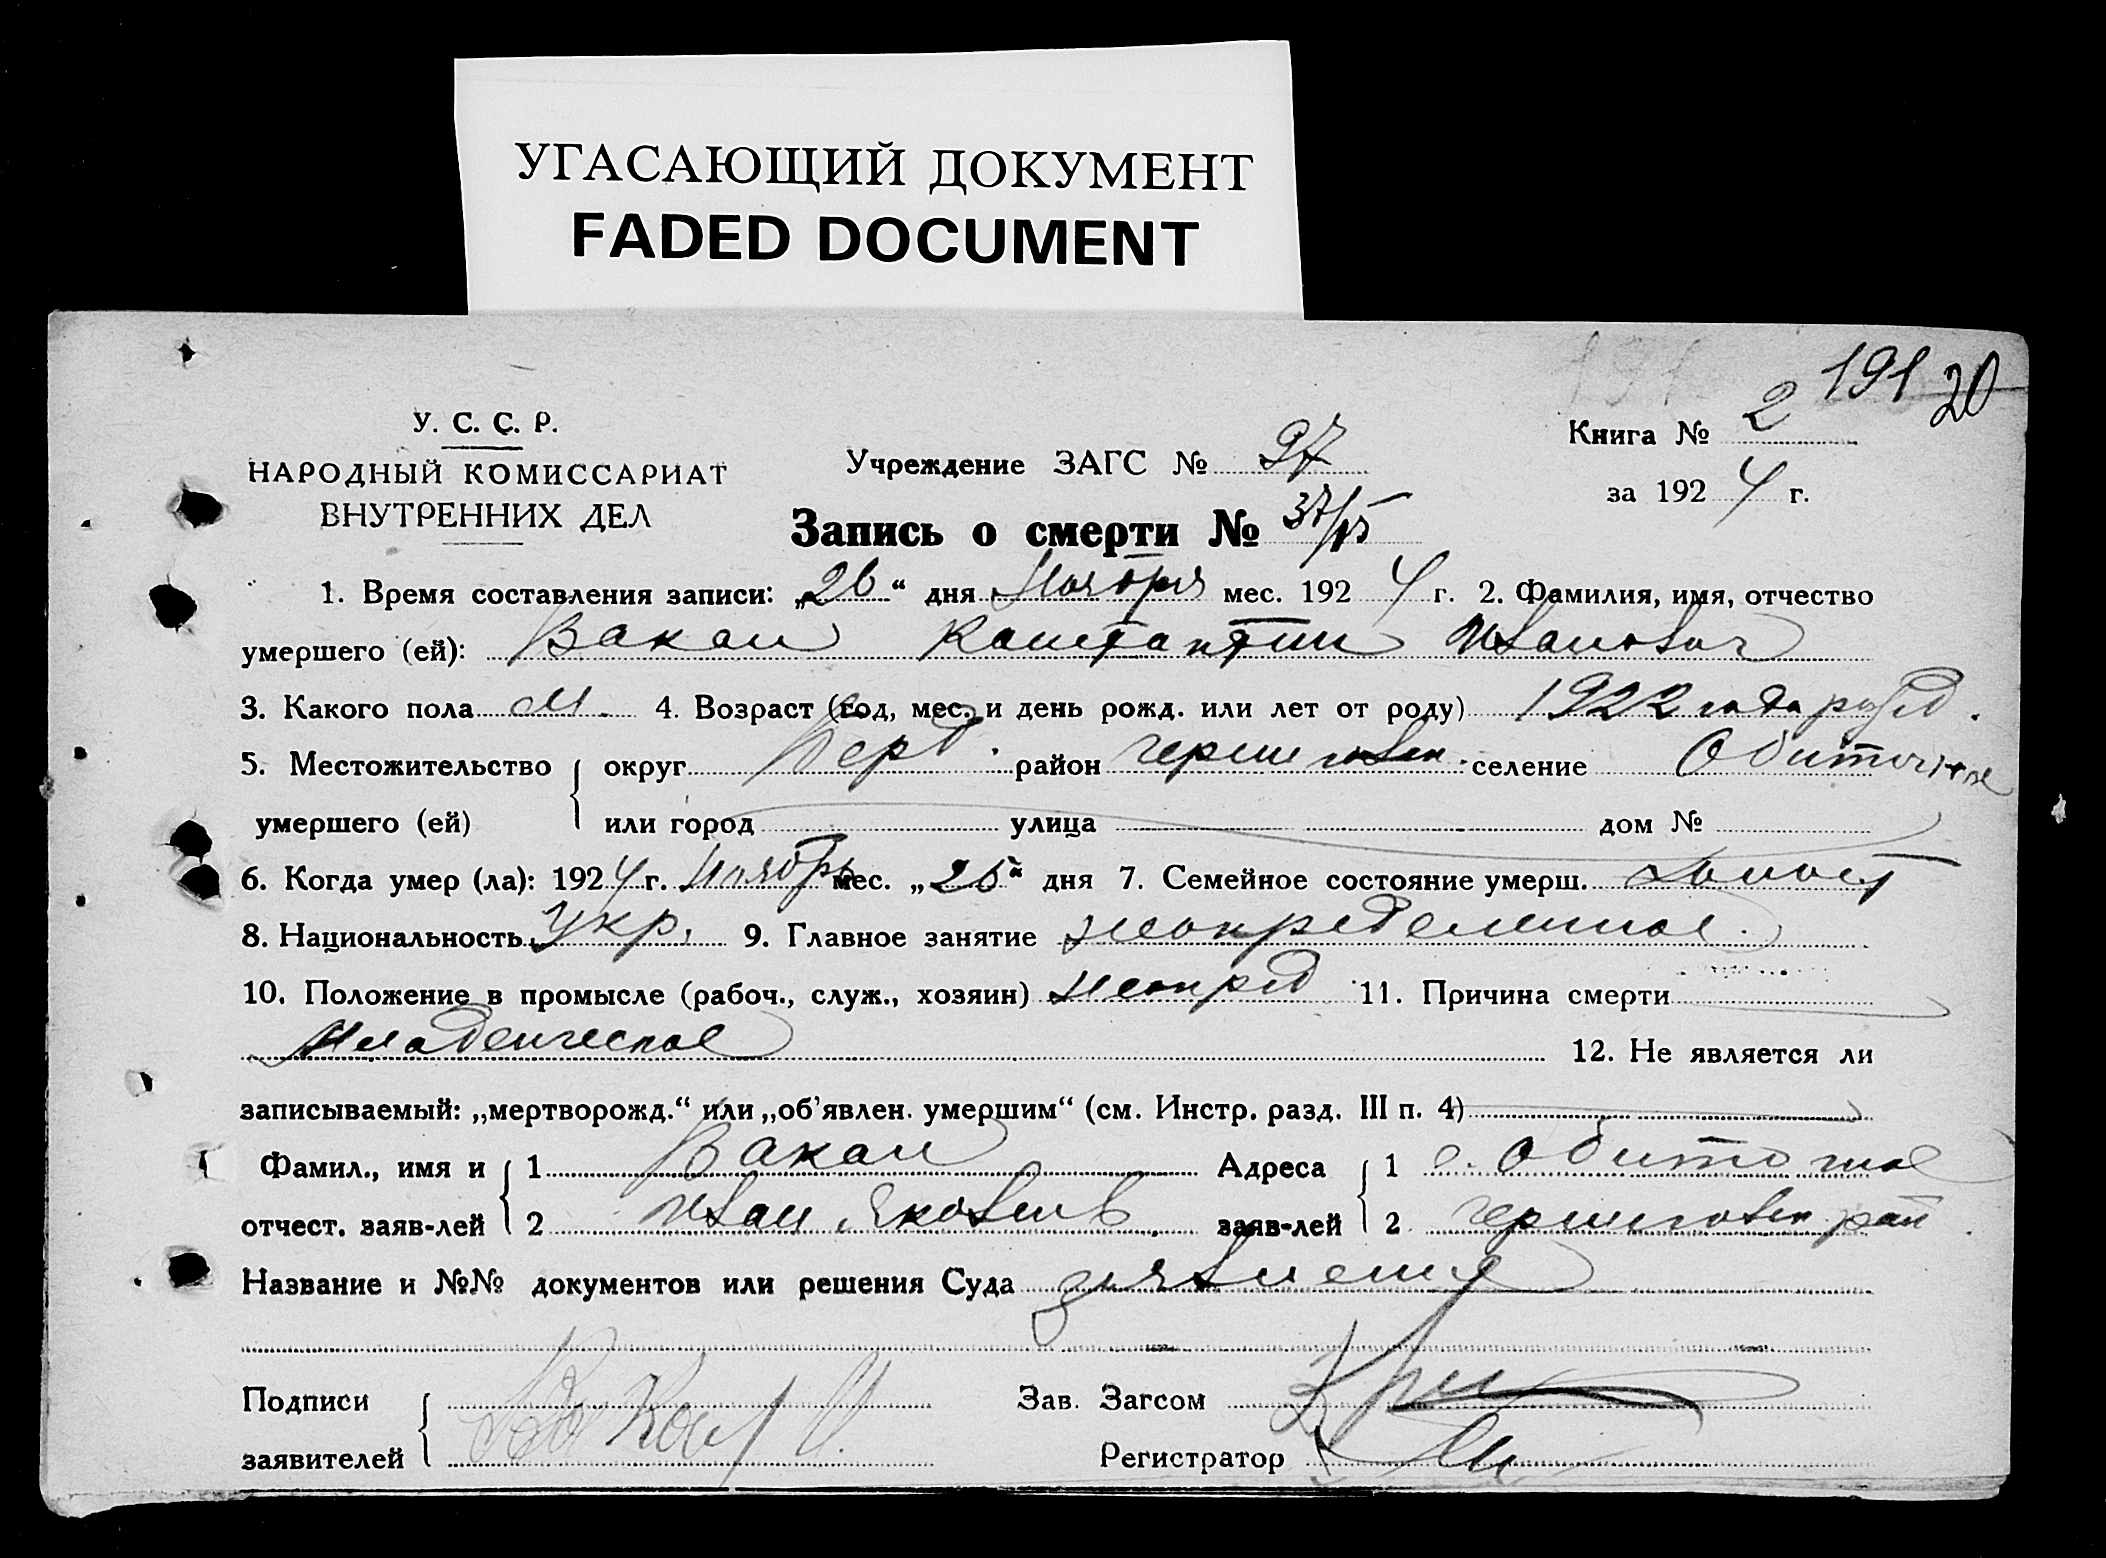 УГАСАЮЩИЙ ДОКУМЕНТ
FADED DOCUMENT
191 20
У. С. С. Р.
НАРОДНЫЙ КОМИССАРИАТ
ВНУТРЕННИХ ДЕЛ
Учреждение ЗАГС № 97
Книга № 2
за 1924 г.
Запись о смерти № 37/15
1. Время составления записи: „26“ дня Ноября мес. 1924 г. 2. Фамилия, имя, отчество
умершего (ей): Вакан Константин Иванович
3. Какого пола М. 4. Возраст (год, мес. и день рожд. или лет от роду) 1922 года рожд.
5. Местожительство умершего (ей) { округ Берд. район Черниговск. селение Обиточное
или город улица дом №
6. Когда умер (ла): 1924 г. Ноябрь мес. „25“ дня 7. Семейное состояние умерш. холост
8. Национальность Укр. 9. Главное занятие неопределенное.
10. Положение в промысле (рабоч., служ., хозяин) неопред 11. Причина смерти
Младенческое 12. Не является ли
записываемый: „мертворожд.“ или „об’явлен. умершим“ (см. Инстр. разд. III п. 4)
Фамил., имя и { 1 Вакан Адреса { 1 с. Обиточное
отчест. заяв-лей 2 Иван заяв-лей 2 Черниговск рай
Название и №№ документов или решения Суда заявление
Подписи заявителей { Зав. Загсом
Регистратор